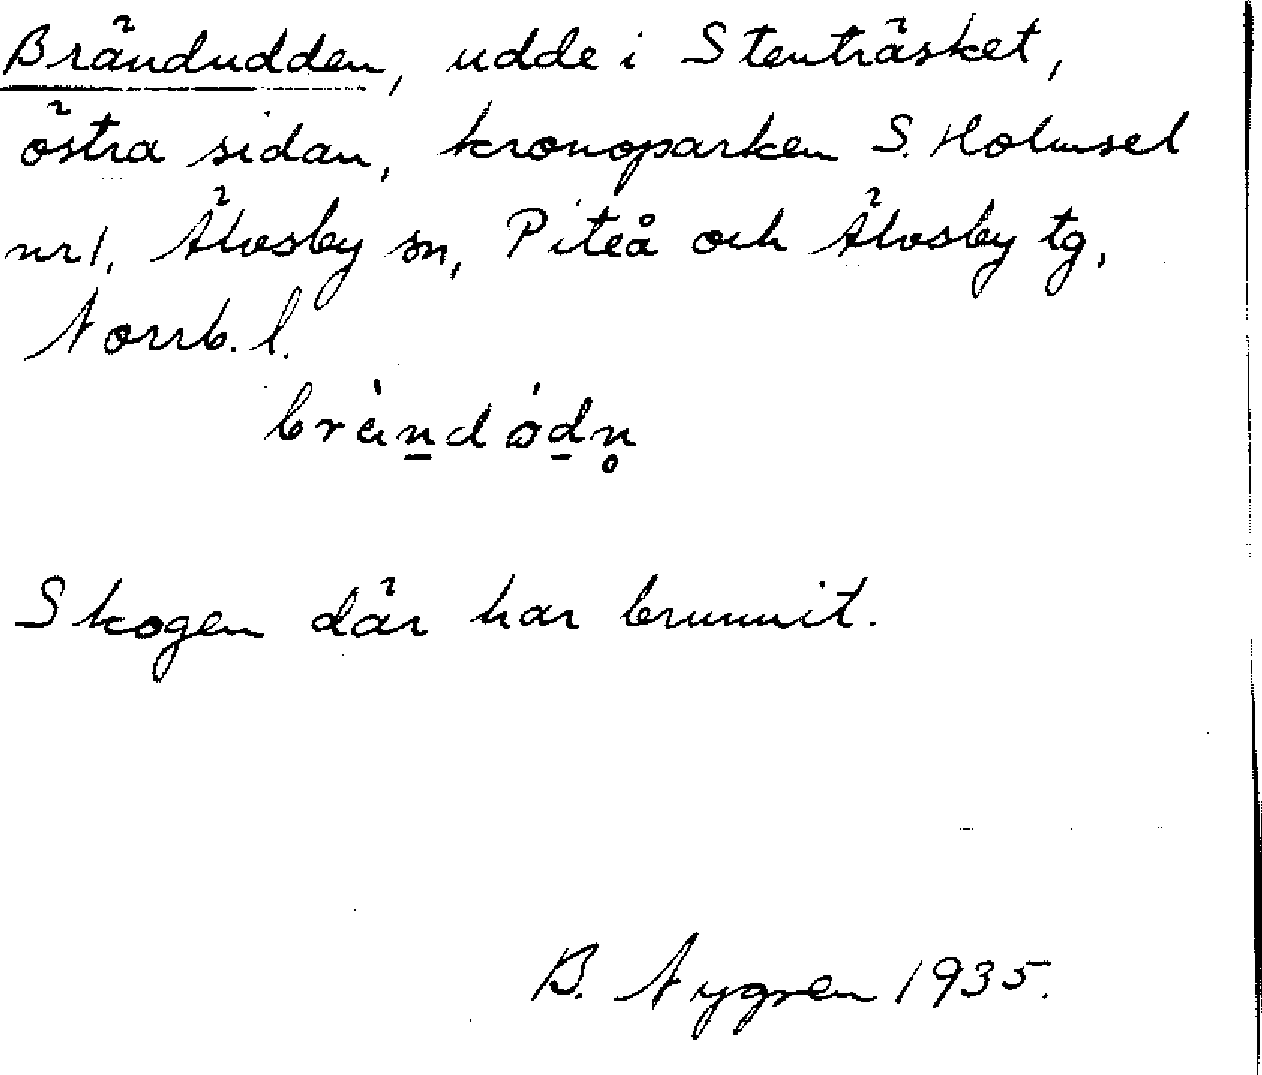 Brändudden, udde i Stenträsket,
östra sidan, kronoparken S. Holmsel
nr 1, Älvsby sn, Piteå och Älvsby tg,
Norrb. l.
Skogen där har brunnit.
B. Nygren 1935.